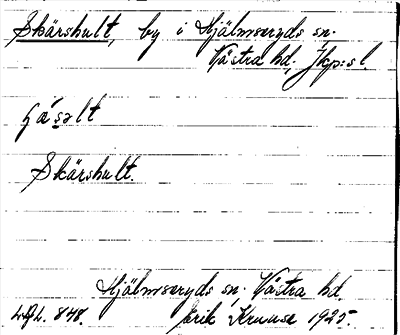 Skärshult, by i Hjälmseryds sn.
Västra hd, Jkp:s l.
Skärshult.
Hjälmseryds sn. Västra hd.
848. Erik Kruuse 1925.